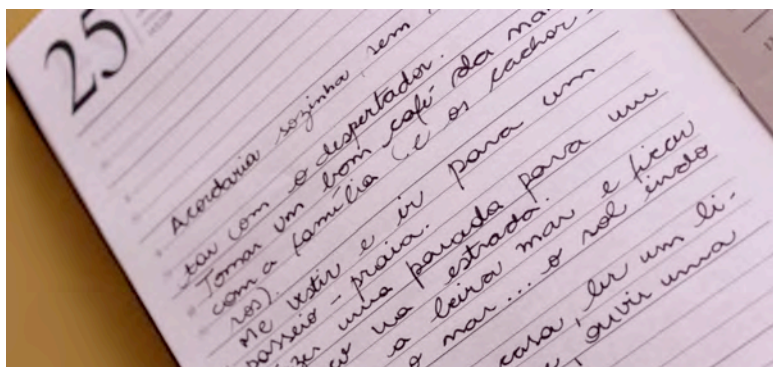 25
Acordaria sozinha, sem
tar com o despertador.
Tomar um bom café da ma
com a família (e os cachor-
ros).
Me vestir e ir para um
passeio - praia.
zer uma parada para um
na estrada.
a beira mar e ficar
o mar... o sol indo
casa, ler um li-
ouvir uma